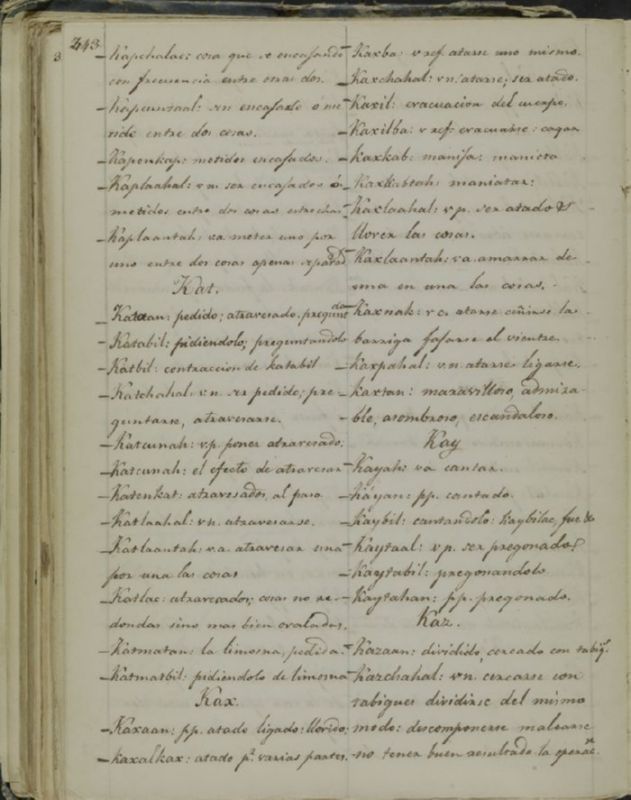 243
3
Kapchalac: cosa que se encajando
con frecuencia entre otras dos.
Kapcunzaal: sin encajarlo ó me
tide entre dos cosas.
Kapenkap: metidos encajados.
Kaplaahal: vn. ser encajados ó
metidos entre dos cosas estrechas
Kaplaantah: va. meter uno por
uno entre dos cosas apenas separad.
Kat.
Kataan: pedido; atravesado. preguntado
Katabil: pidiendolo; preguntandolo
Katbil: contraccion de katabil
Katchahal: vn. ser pedido; pre-
guntarse, atravesarse.
Katcunah: vp. poner atravesado.
Katcunah: el efecto de atravesar
Katenkat: atravesados, al paso
Katlaahal: vn. atravesarse.
Katlaantah: va. atravesar una
por una las cosas
Katlac: atravesados; cosas no re-
dondas sino mas bien ovaladas.
Katmatan: la limosna pedida.
Katmatbil: pidiendolo de limosna
Kax.
Kaxaan: pp. atado ligado: llovido;
Kaxalkax: atado pr. varias partes.
Kaxba: v ref. atarse uno mismo.
Kaxchahal: vn. atarse; ser atado.
Kaxil: evacuacion del cuerpo.
Kaxilba: v ref. evacuarse: cagar
Kaxkab: manija: manieta
Kaxkabtah: maniatar:
Kaxlaahal: vp. ser atado &
llover las cosas.
Kaxlaantah: va. amarrar de
una en una las cosas.
Kaxnak: va. atarse ciñirse la
barriga fajarse el vientre.
Kaxpahal: vn. atarse ligarse.
Kaxtan: maravilloso, admira-
ble, asombroso, escandaloso.
Kay
Kayah: va cantar.
Káyan: pp. cantado.
Kaybil: cantandolo: Kaybilac, fue &
Kaytaal: vp. ser pregonado
Kaytabil: pregonandolo
Kaytahan: pp. pregonado.
Kaz.
Kazaan: dividido, cercado con tabiq.
Kazchahal: vn. cercarse con
tabiques dividirse del mismo
modo: descomponerse malearse
no tener buen resultado la operac.